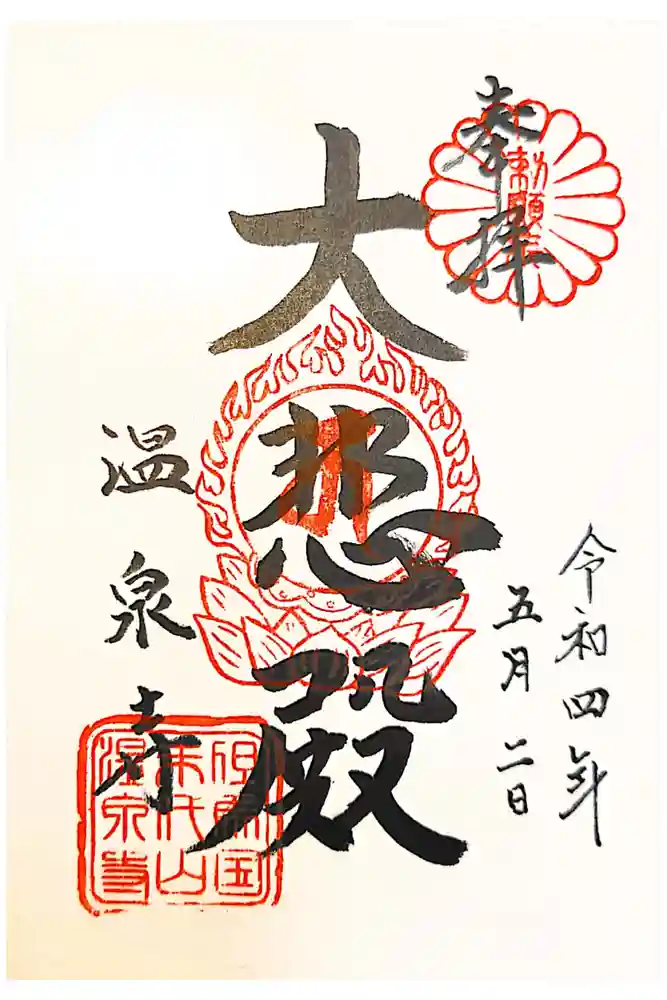 奉拝
勅願
大悲殿
令和四年
五月二日
温泉寺
但馬国
末代山
温泉寺